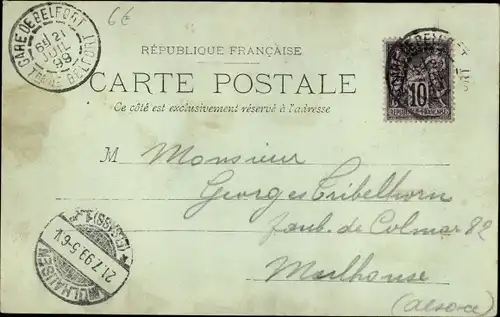 6€
GARE DE BELFORT
21
JUIL
99
RÉPUBLIQUE FRANÇAISE
CARTE POSTALE
Ce côté est exclusivement réservé à l'adresse
10
REPUBLIQUE FRANÇAISE
M Monsieur
Georges Tribelhorn
faub. de Colmar 82
Mulhouse
(Alsace)
MÜLHAUSEN
21.7.99.5-6V.
(ELSASS)